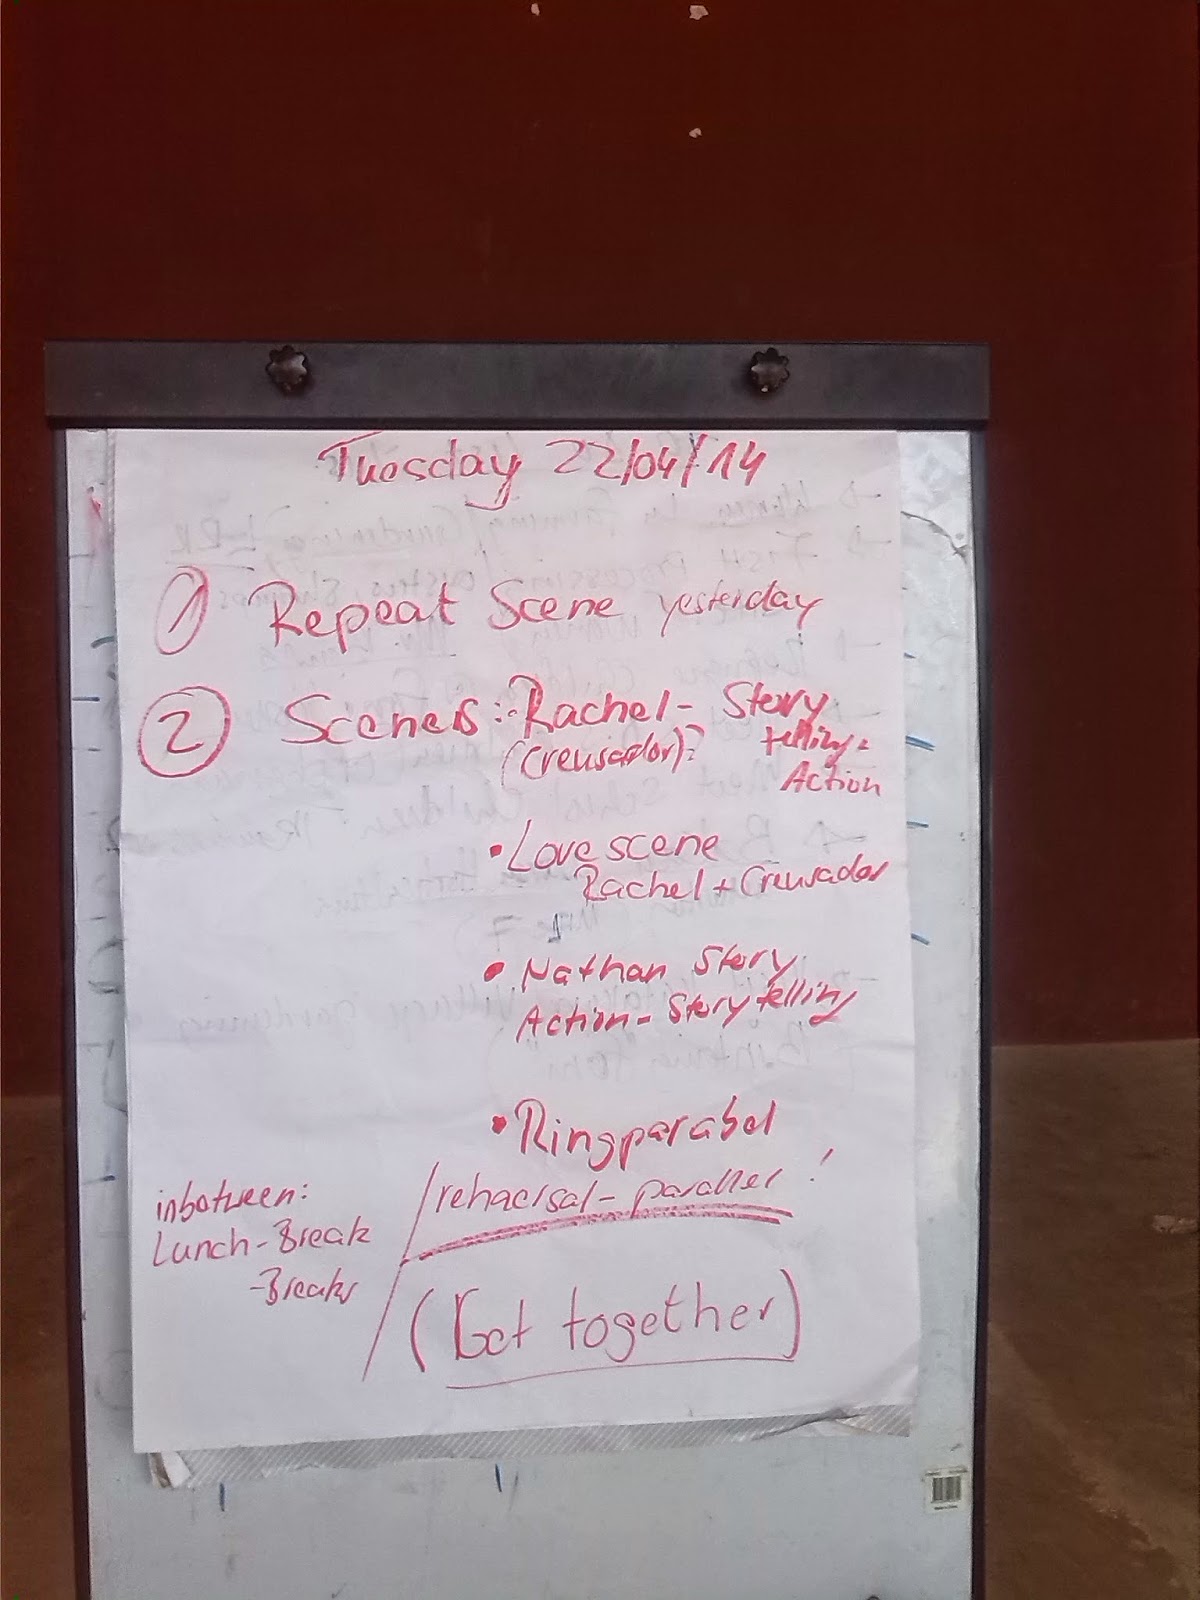 Tuesday 22/04/14
1 Repeat Scene yesterday
2 Scenes:- Rachel - Story
(Creusador)? telling-
Action
• Love scene
Rachel + Creusador
• Nathan Story
Action - Story telling
• Ringparabel
/rehaersal - paraller !
inbetween:
Lunch - Break
- Breaks
(Get together)